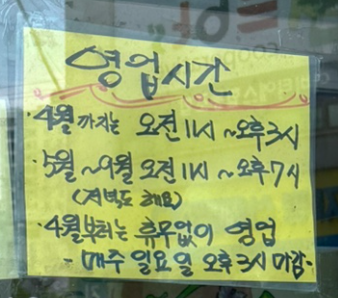 영업시간
·4월 까지는 오전 11시 ~오후 3시
·5월 ~9월 오전 11시 ~오후 7시
(저녁도 해요)
·4월부터는 휴무없이 영업
- 매주 일요일 오후 3시 마감-